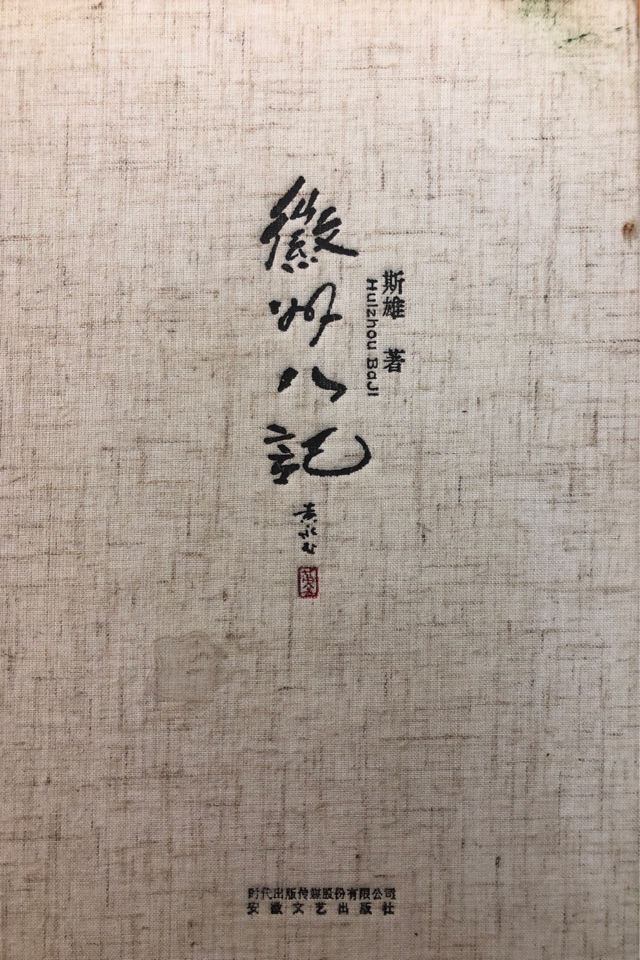 徽州八記
斯雄 著
Huizhou BaJi
黄永玉
时代出版传媒股份有限公司
安徽文艺出版社